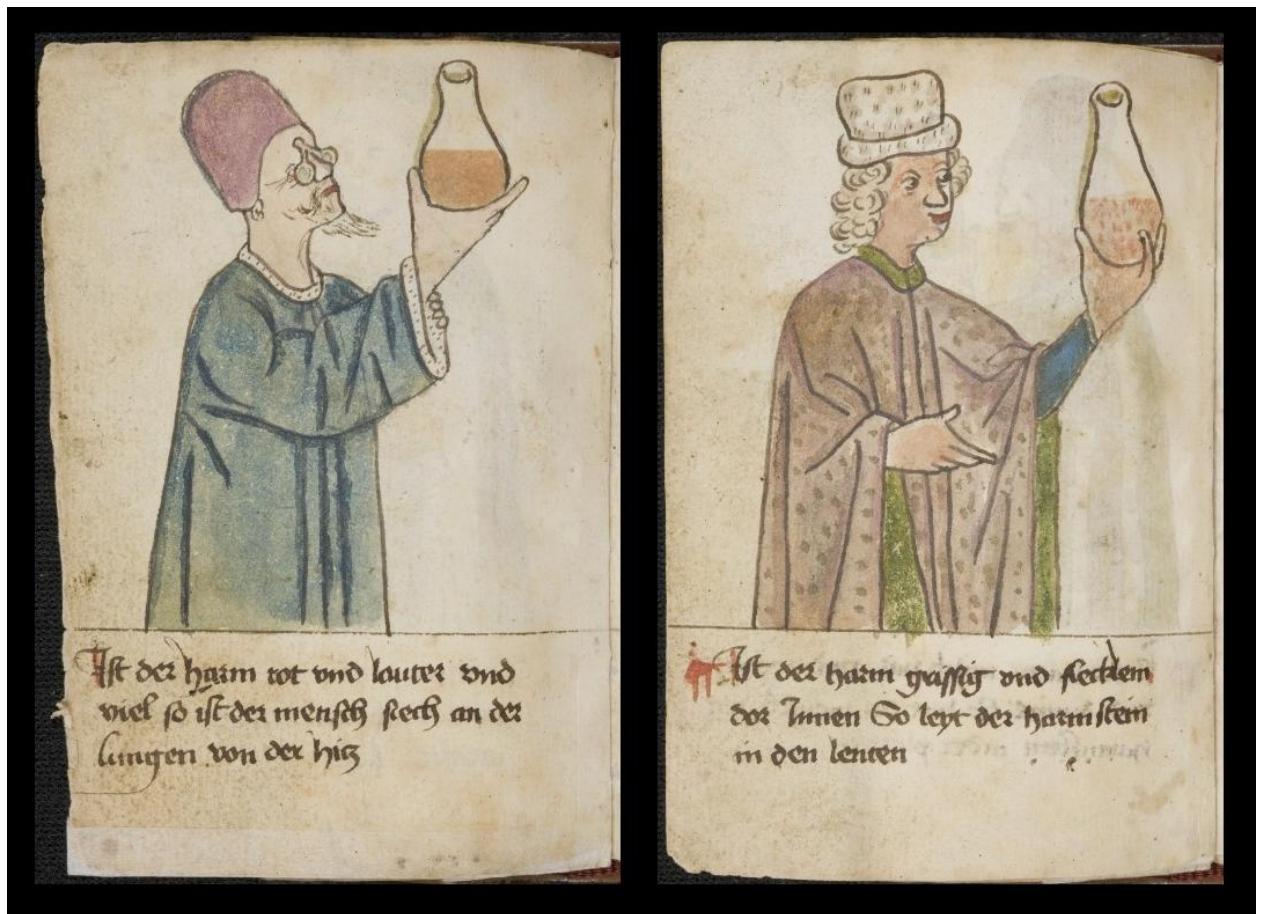 Ist der harm rot vnd lauter vnd
viel so ist der mensch siech an der
lungen von der hitz
Ist der harm grissig vnd flecklein
dor Innen So leyt der harnstein
in den lenten